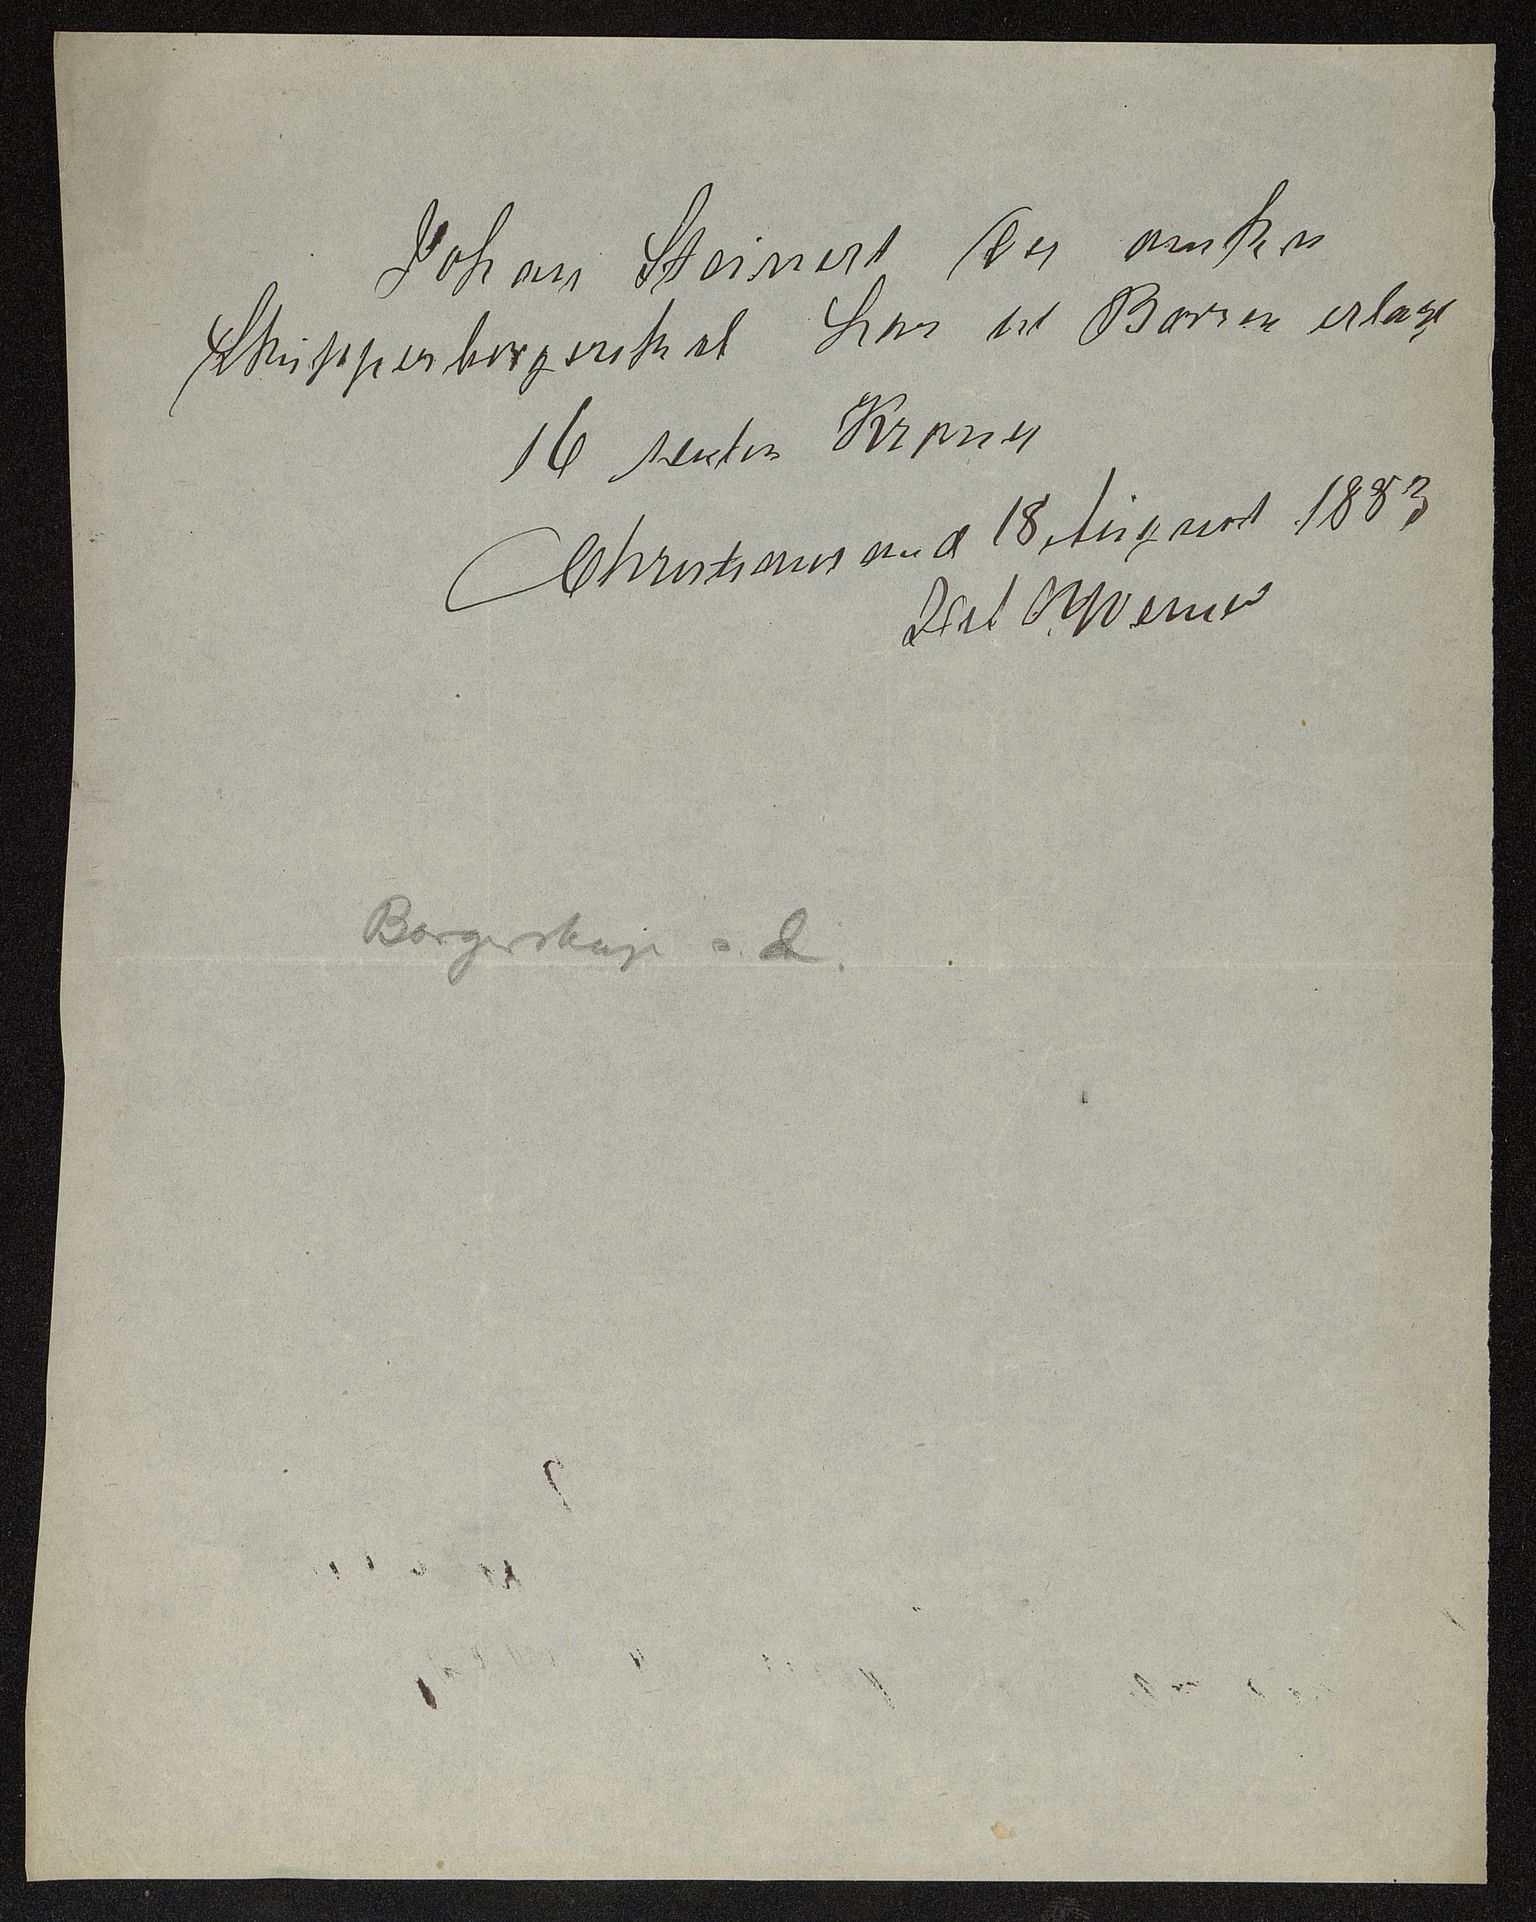 Johan Steinert der ønsker
Skipperborgerskab har til Børsen erlagt
16 sexten Kroner
Christianssand 18 August 1883
Werner
Borgerskap o. l.